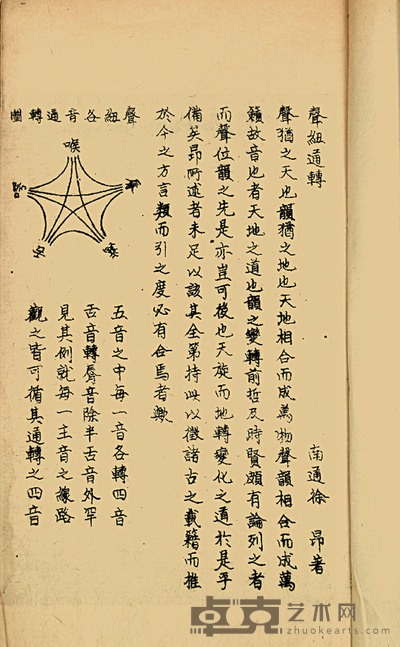 聲紐通轉
南通徐昂著
聲猶之天也韻猶之地也天地相合而成萬物聲韻相合而成萬
籟故音也者天地之道也韻之變轉前哲及時賢頗有論列之者
而聲位韻之先是亦豈可後也天旋而地轉變化之道於是乎
備矣昂所述者未足以該其全第持此以徵諸古之載籍而推
於今之方言類而引之度必有合焉者歟
聲紐各音通轉圖
喉
牙
舌
五音之中每一音各轉四音
舌音轉脣音除半舌音外罕
見其例就每一主音之線路
觀之皆可循其通轉之四音
卓克艺术网
zhuokearts.com